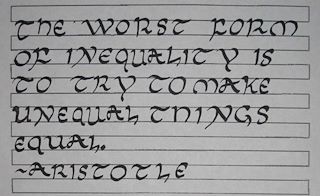 THE WORST FORM
OF INEQUALITY IS
TO TRY TO MAKE
UNEQUAL THINGS
EQUAL.
~ARISTOTLE